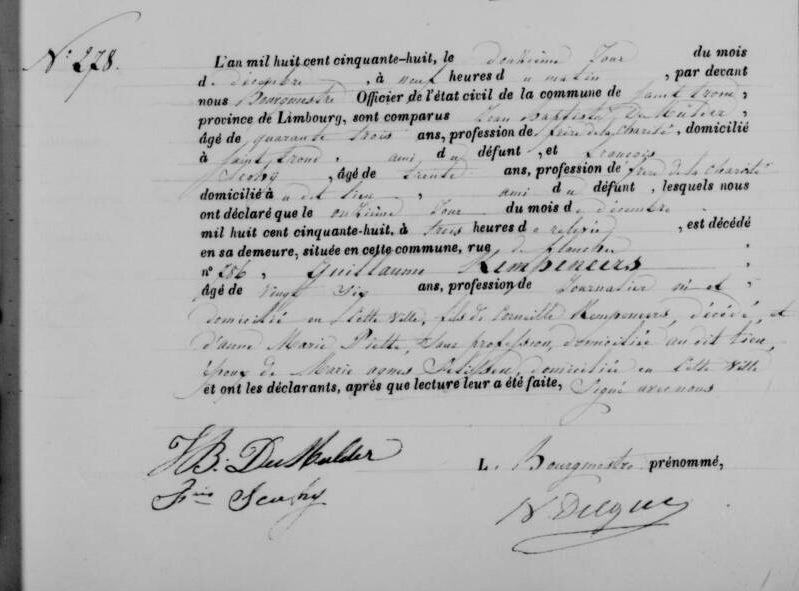 N° 278.
L'an mil huit cent cinquante-huit, le douzième jour du mois
de décembre, à neuf heures du matin, par devant
nous Bourgmestre Officier de l'état civil de la commune de Saint trond,
province de Limbourg, sont comparus Jean Baptiste De Mulder,
âgé de quarante trois ans, profession de frère de la Charité, domicilié
à Saint trond, ami du défunt, et françois
âgé de trente ans, profession de frère de la Charité
domicilié à u dit lieu, ami du défunt, lesquels nous
ont déclaré que le onzième jour du mois de décembre
mil huit cent cinquante-huit, à trois heures de relevée, est décédé
en sa demeure, située en cette commune, rue de plancken
n° 286, Guillaume Kempeneers,
âgé de vingt six ans, profession de Journalier né et
domicilié en cette ville, fils de Corneille Kempeneers, décédé, et
d'anne Marie Piette, sans profession, domiciliée au dit lieu,
époux de Marie agnes domiciliée en cette ville
et ont les déclarants, après que lecture leur a été faite, Signé avec nous
JB. De Mulder
L. Bourgmestre prénommé,